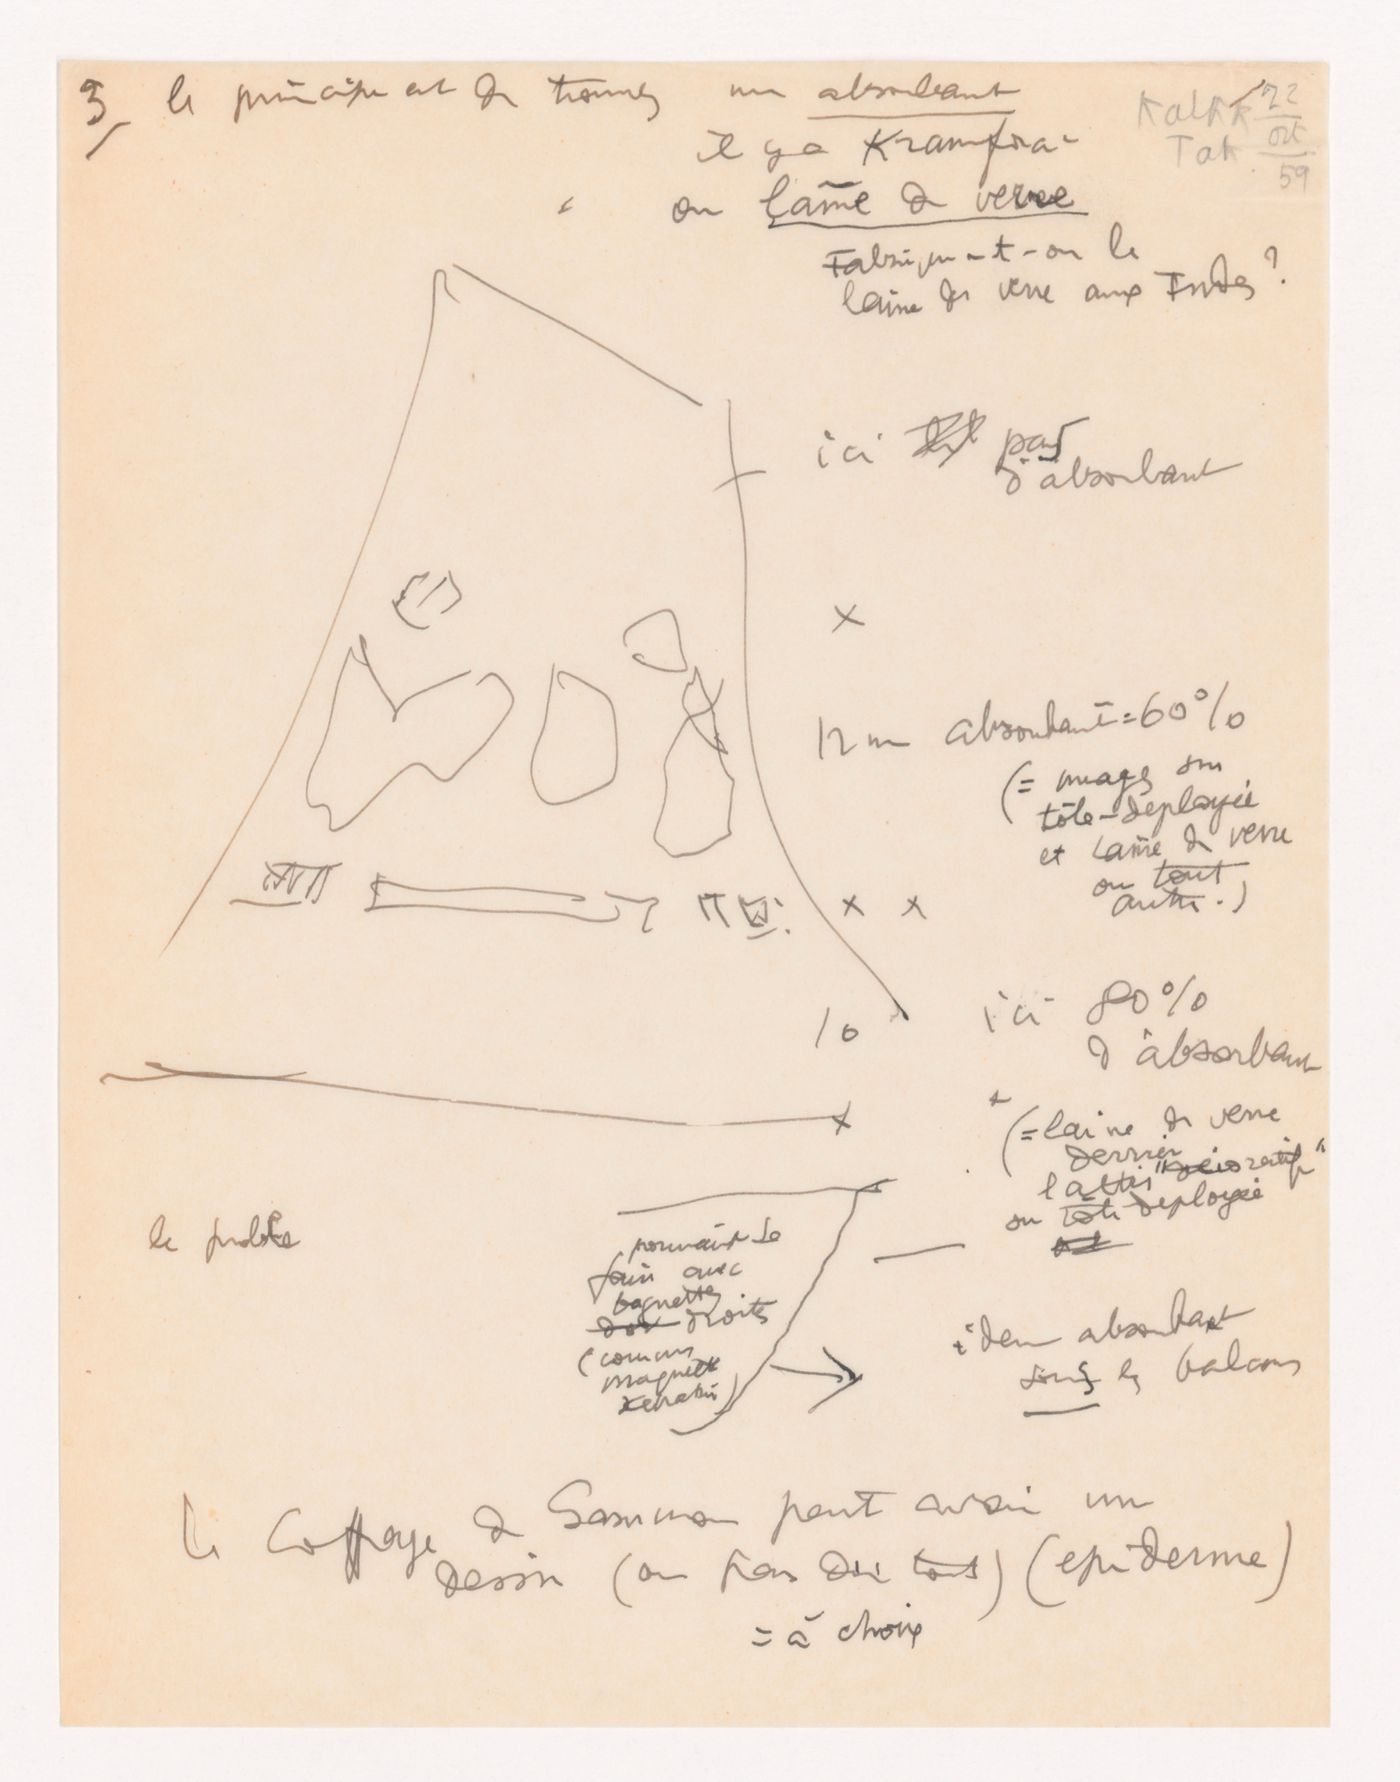 3 le principe est de trouver un absorbant
Kalff 22
Tak oct
59
il y a Kramfora
ou laine de verre
Fabrique-t-on la
laine de verre aux Indes ?
ici pas
d'absorbant
x
12 m absorbant = 60%
(= nuages sur
tôle-déployée
et laine de verre
ou tout
autre.)
x x
10 ici 80%
d'absorbant
x
(= laine de verre
derrière
lattis
ou tôle déployée
le problè
pouvant se
faire avec
baguettes
droites
(comme
maquette
Xenakis)
idem absorbant
sous les balcons
le coffrage de Samson peut avoir un
dessin (ou pas du tout) (epiderme)
= à choix